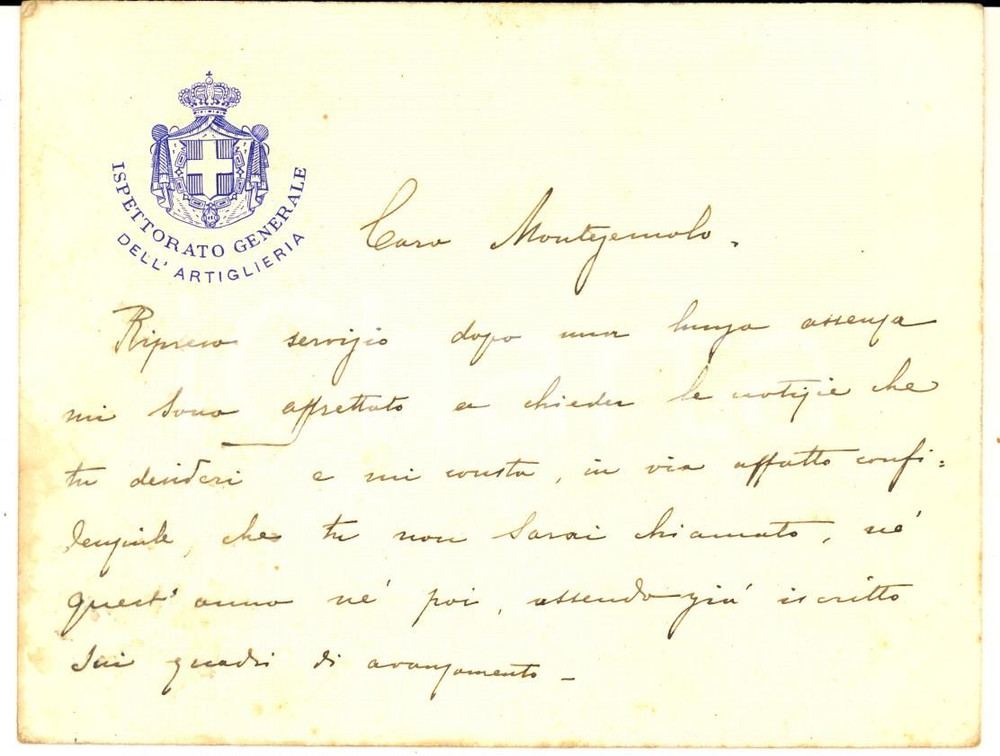 ISPETTORATO GENERALE
DELL'ARTIGLIERIA
Caro Montezemolo.
Ripreso servizio dopo una lunga assenza
mi sono affrettato a chieder le notizie che
tu desideri e mi consta, in via affatto confi=
denziale, che tu non sarai chiamato, nè
quest'anno nè poi, essendo già iscritto
sui quadri di avanzamento_